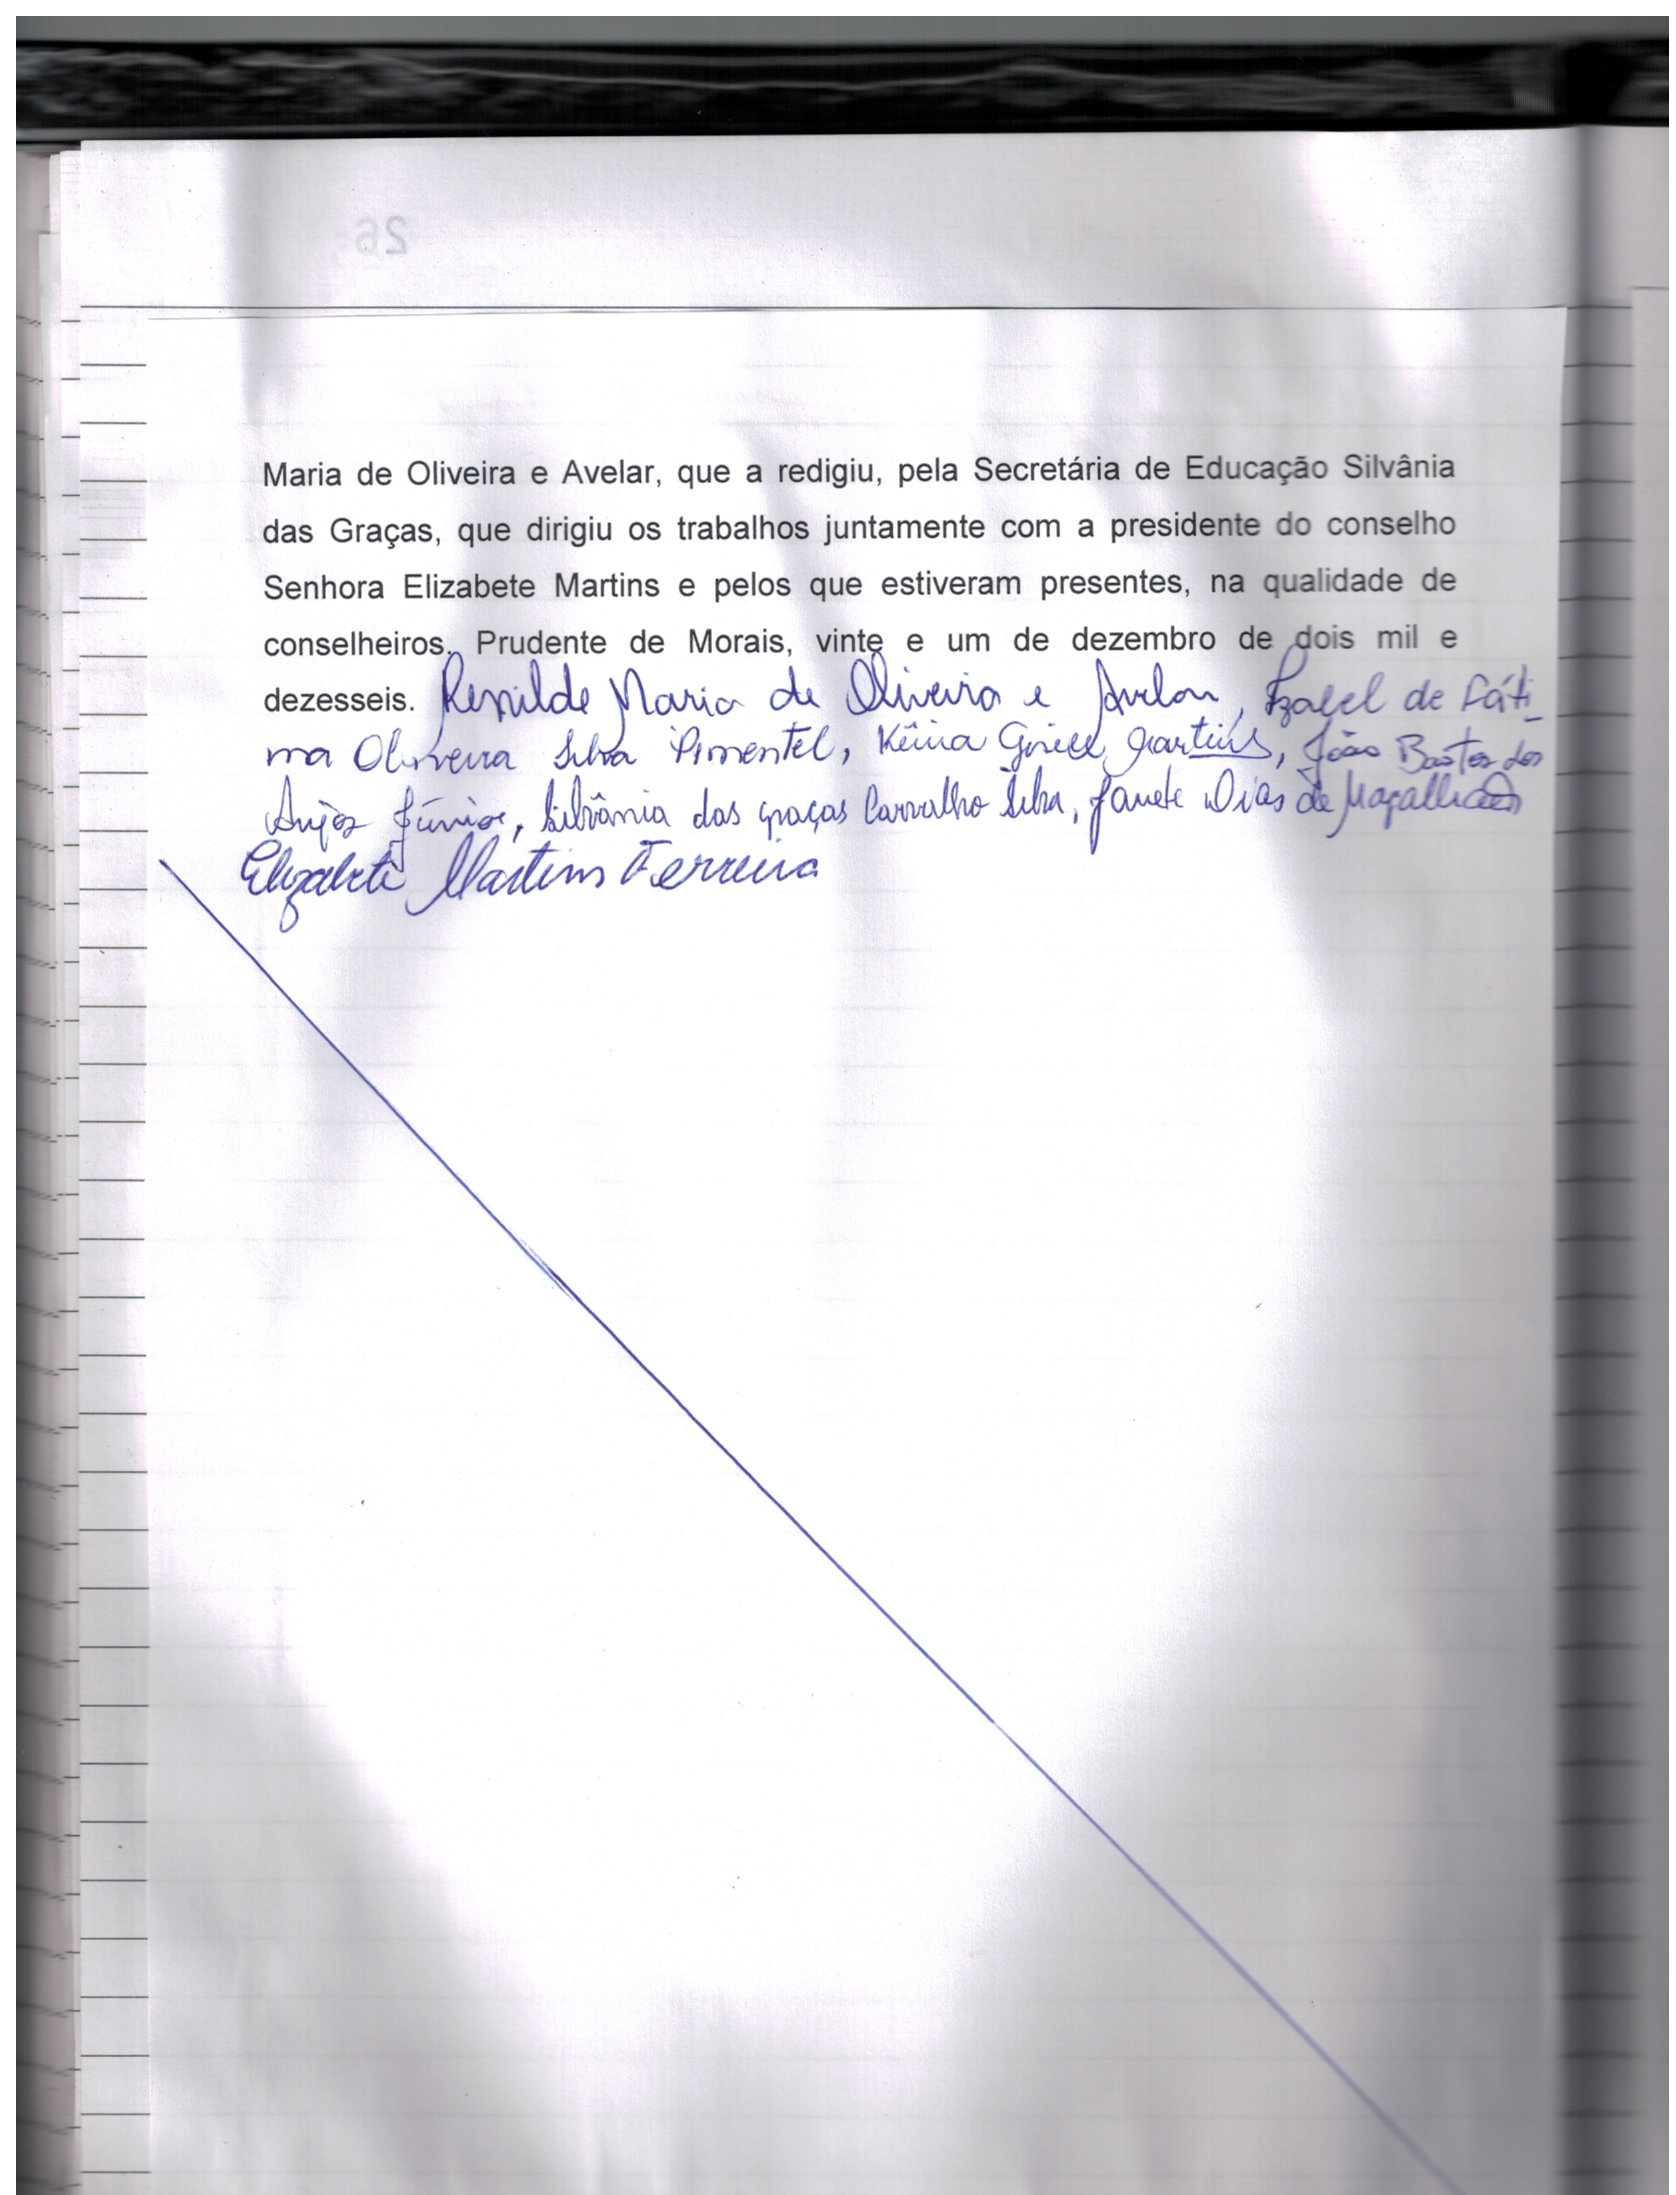 26
Maria de Oliveira e Avelar, que a redigiu, pela Secretária de Educação Silvânia
das Graças, que dirigiu os trabalhos juntamente com a presidente do conselho
Senhora Elizabete Martins e pelos que estiveram presentes, na qualidade de
conselheiros. Prudente de Morais, vinte e um de dezembro de dois mil e
dezesseis. Renilde Maria de Oliveira e Avelar, Izabel de Fáti-
ma Oliveira Silva Pimentel, Martins, João Bastos dos
Anjos Júnior, Silvânia das graças Carvalho Silva, Janete Dias de Magalhães
Elizabete Martins Ferreira